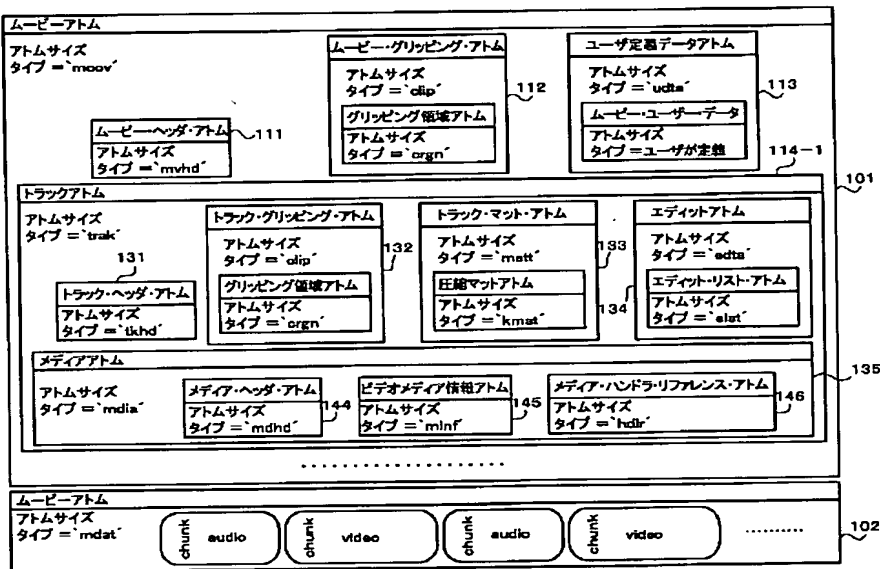 ムービーアトム
アトムサイズ
タイプ=`moov'
ムービー・グリッピング・アトム
アトムサイズ
タイプ=`clip'
グリッピング領域アトム
アトムサイズ
タイプ=`crgn'
112
ユーザ定義データアトム
アトムサイズ
タイプ=`udta'
ムービー・ユーザー・データ
アトムサイズ
タイプ=ユーザが定義
113
ムービーヘッダ・アトム
アトムサイズ
タイプ=`mvhd'
111
114-1
101
トラックアトム
アトムサイズ
タイプ=`trak'
131
トラック・ヘッダ・アトム
アトムサイズ
タイプ=`tkhd'
トラック・グリッピング・アトム
アトムサイズ
タイプ=`clip'
グリッピング領域アトム
アトムサイズ
タイプ=`crgn'
132
トラック・マット・アトム
アトムサイズ
タイプ=`matt'
圧縮マットアトム
アトムサイズ
タイプ=`kmat'
133
エディットアトム
アトムサイズ
タイプ=`edts'
エディット・リスト・アトム
アトムサイズ
タイプ=`elst'
134
メディアアトム
アトムサイズ
タイプ=`mdia'
メディア・ヘッダ・アトム
アトムサイズ
タイプ=`mdhd'
144
ビデオメディア情報アトム
アトムサイズ
タイプ=`minf'
145
メディア・ハンドラ・リファレンス・アトム
アトムサイズ
タイプ=`hdlr'
146
135
‥‥‥‥‥‥‥
ムービーアトム
アトムサイズ
タイプ=`mdat'
chunk audio
chunk video
chunk audio
chunk video
‥‥‥‥‥
102